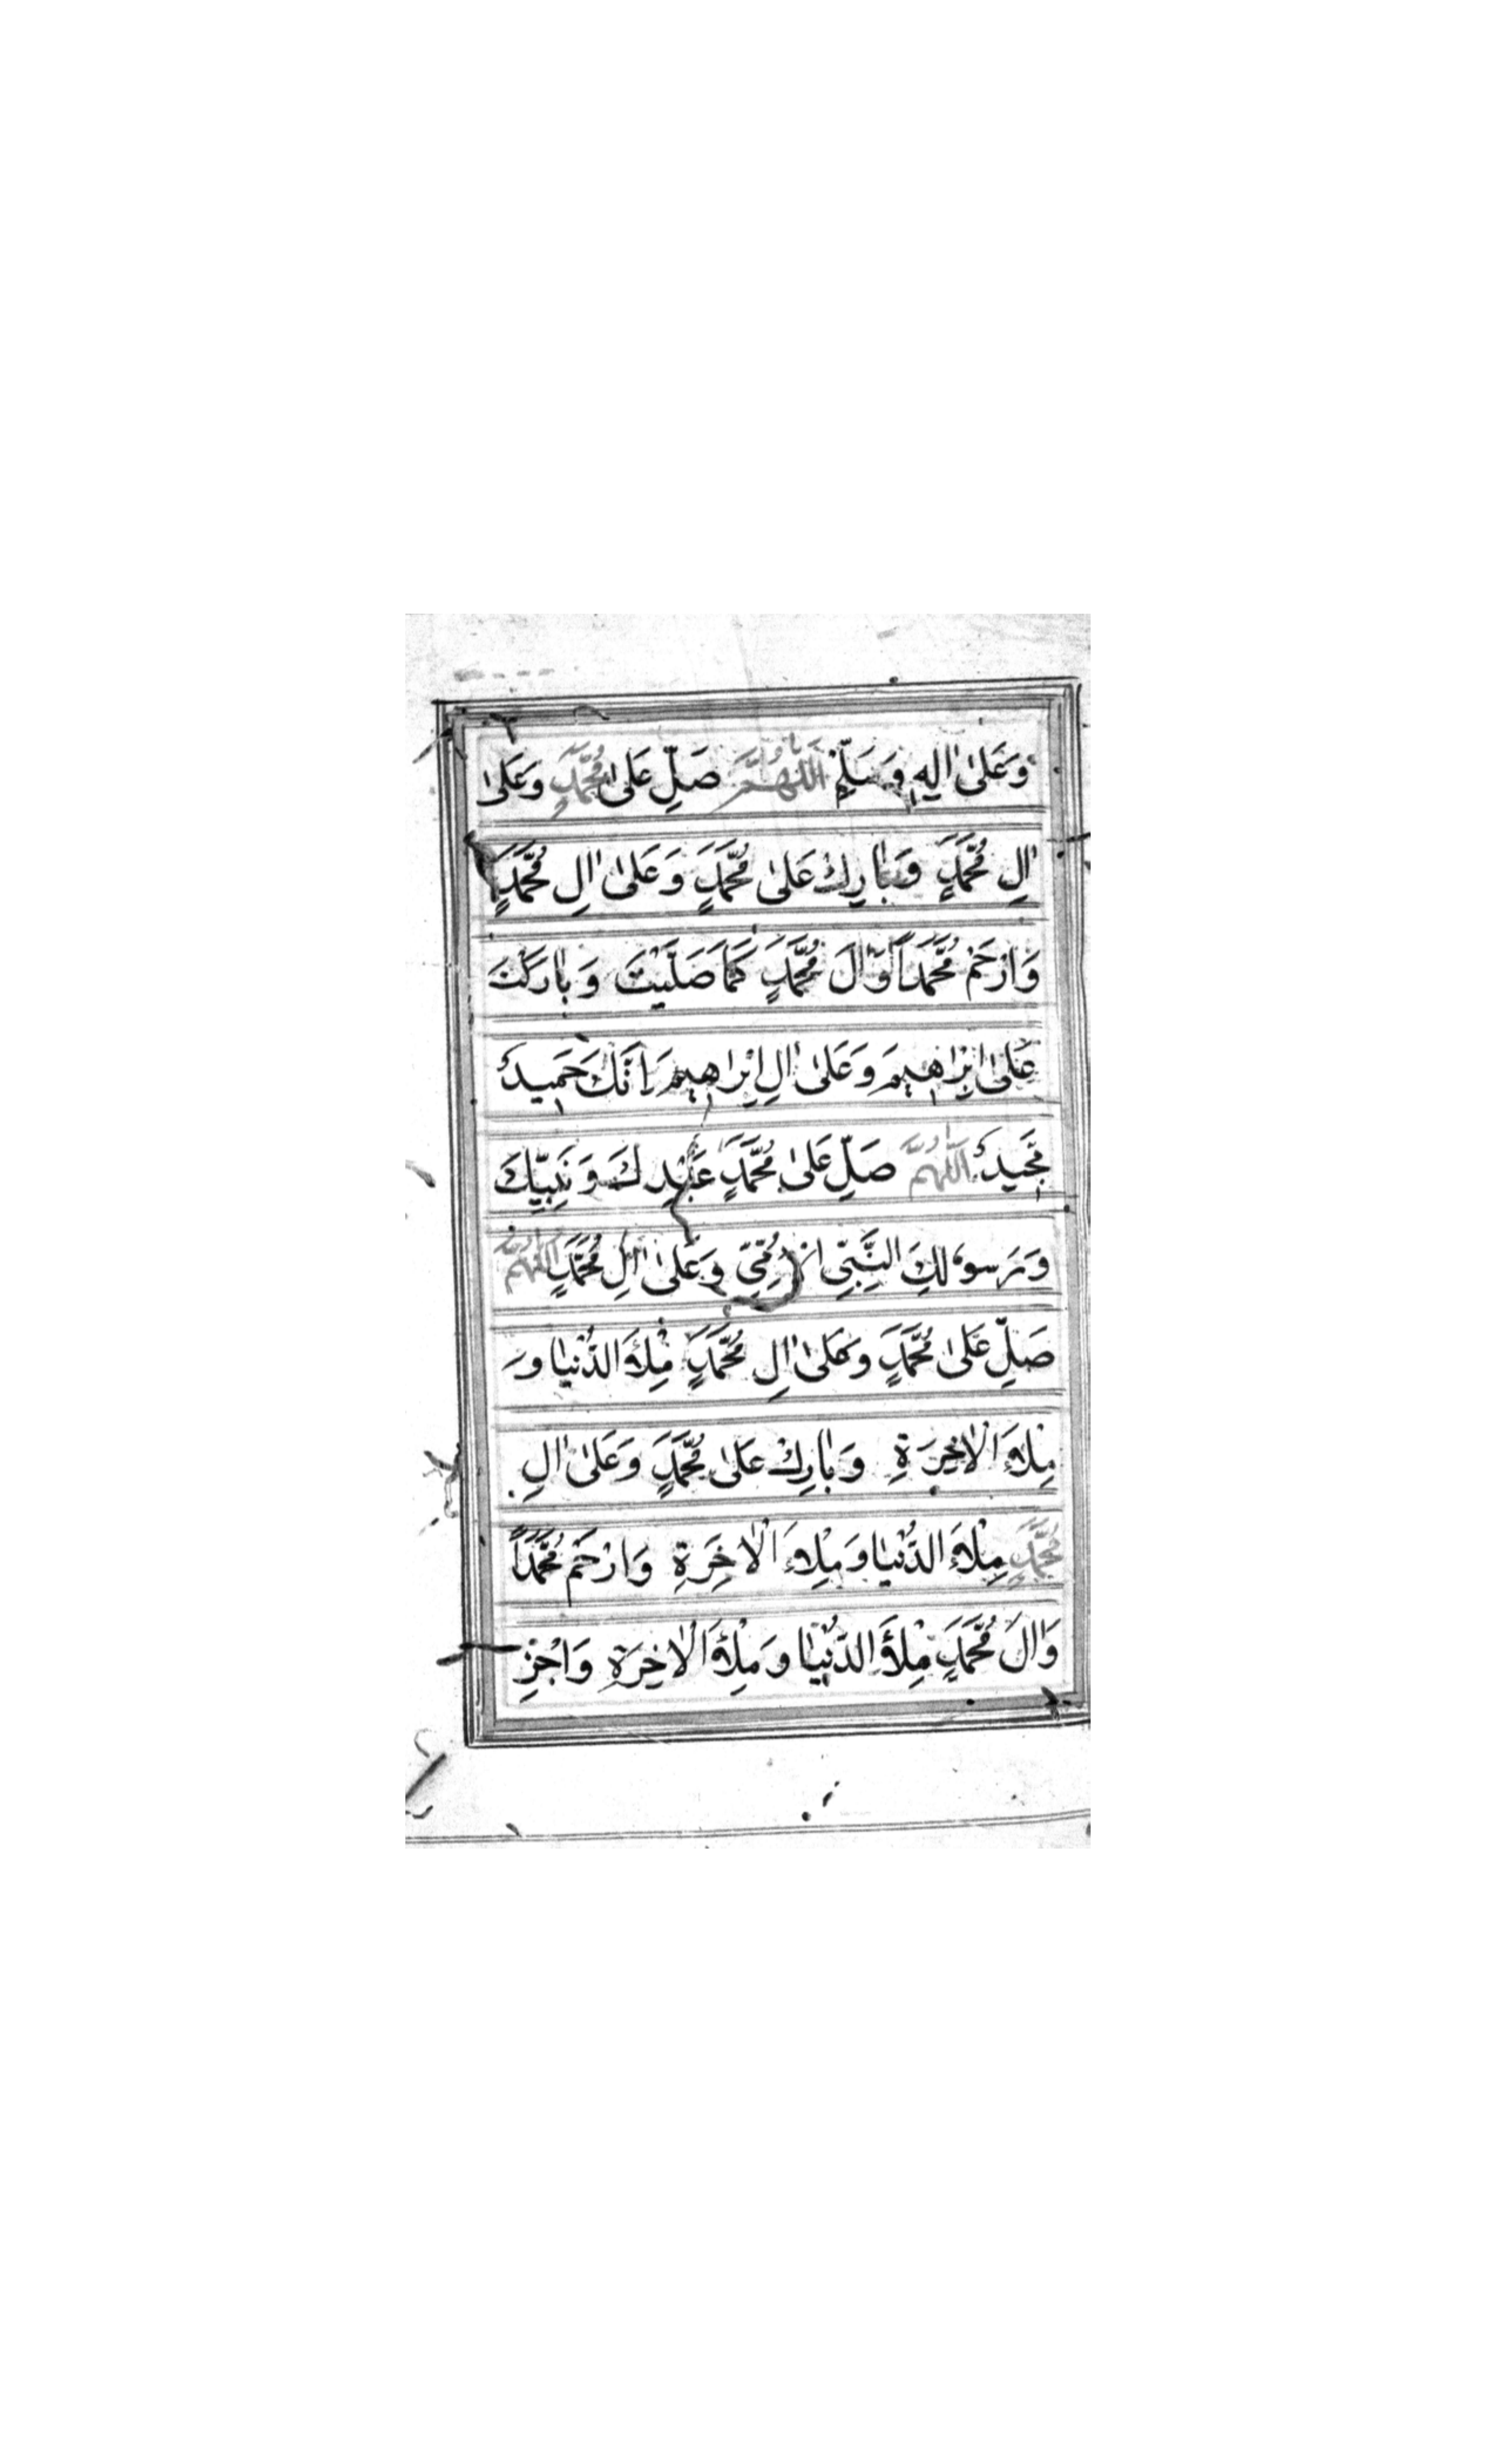 وَعَلىٰ اٰلِهٖ وَسَلِّمْ اَللّٰهُمَّ صَلِّ عَلىٰ مُحَمَّدٍ وَعَلىٰ
اٰلِ مُحَمَّدٍ وَبٰارِكْ عَلىٰ مُحَمَّدٍ وَعَلىٰ اٰلِ مُحَمَّدٍ
وَارْحَمْ مُحَمَّداً وَّاٰلَ مُحَمَّدٍ كَمَا صَلَّيْتَ وَبٰارَكْتَ
عَلىٰ اِبْرٰاهٖيمَ وَعَلىٰ اٰلِ اِبْرٰاهٖيمَ اِنَّكَ حَمٖيدٌ
مَجٖيدٌ اَللّٰهُمَّ صَلِّ عَلىٰ مُحَمَّدٍ عَبْدِكَ وَنَبِيِّكَ
وَرَسوُلِكَ النَّبِيِّ الْاُمِّيِّ وَعَلىٰ اٰلِ مُحَمَّدٍ اَللّٰهُمَّ
صَلِّ عَلىٰ مُحَمَّدٍ وَعَلىٰ اٰلِ مُحَمَّدٍ مِلْأَ الدُّنْيٰا وَ
مِلْأَ الْاٰخِرَةِ وَبٰارِكْ عَلىٰ مُحَمَّدٍ وَعَلىٰ اٰلِ
مُحَمَّدٍ مِلْأَ الدُّنْيٰا وَمِلْأَ الْاٰخِرَةِ وَارْحَمْ مُحَمَّداً
وَاٰلَ مُحَمَّدٍ مِلْأَ الدُّنْيٰا وَمِلْأَ الْاٰخِرَةِ وَاجْزِ